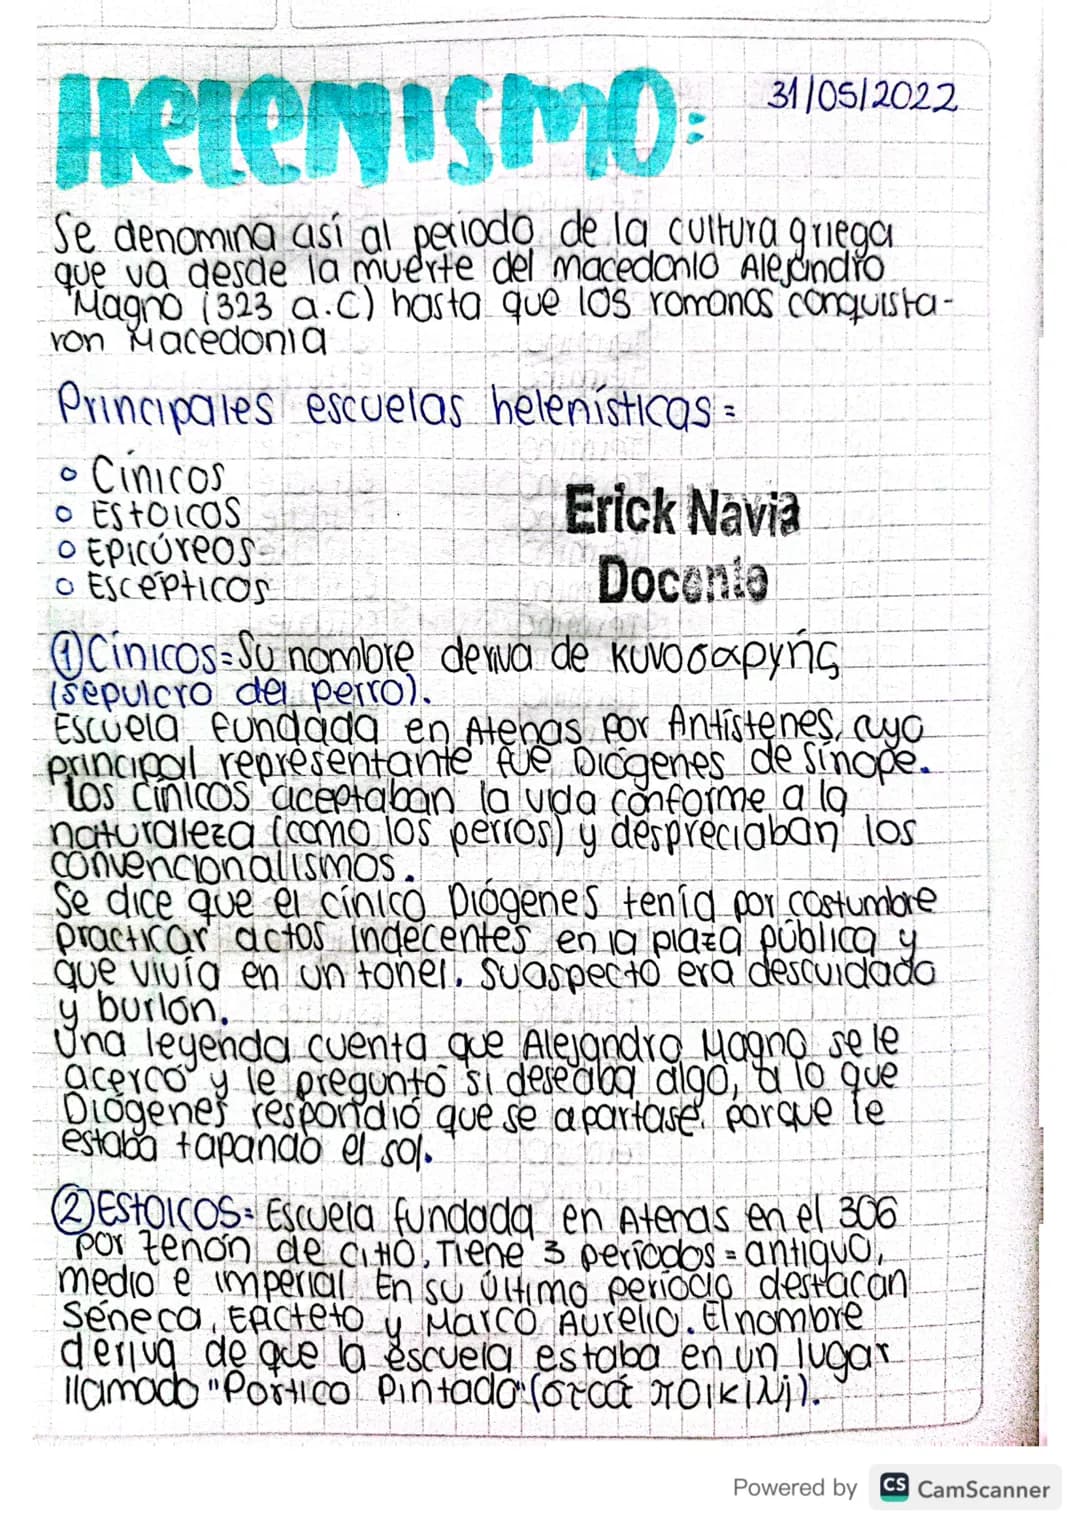 Helenismo:
31/05/2022
Se denomina así al periodo de la cultura griega
que va desde la muerte del macedonio Alejandro
Magno (323 a.C) hasta que los romanos conquista-
ron Macedonia
Principales escuelas helenísticas=
o Cínicos
o Estoicos
o Epicúreos
o Escépticos
Erick Navia
Docente
① Cínicos= Su nombre deriva de κυνοσαργής
(sepulcro del perro).
Escuela fundada en Atenas por Antístenes, cuyo
principal representante fue Diógenes de Sínope.
Los cínicos aceptaban la vida conforme a la
naturaleza (como los perros) y despreciaban los
convencionalismos.
Se dice que el cínico Diógenes tenía por costumbre
practicar actos indecentes en la plaza pública y
que vivía en un tonel. Su aspecto era descuidado
y burlón.
Una leyenda cuenta que Alejandro Magno se le
acercó y le preguntó si deseaba algo, a lo que
Diógenes respondió que se apartase porque le
estaba tapando el sol.
② Estoicos= Escuela fundada en Atenas en el 306
por Zenón de Citio. Tiene 3 períodos= antiguo,
medio e imperial. En su último período destacan
Séneca, Epicteto y Marco Aurelio. El nombre
deriva de que la escuela estaba en un lugar
llamado "Pórtico Pintado" (στοά ποικιλή).
Powered by CS CamScanner